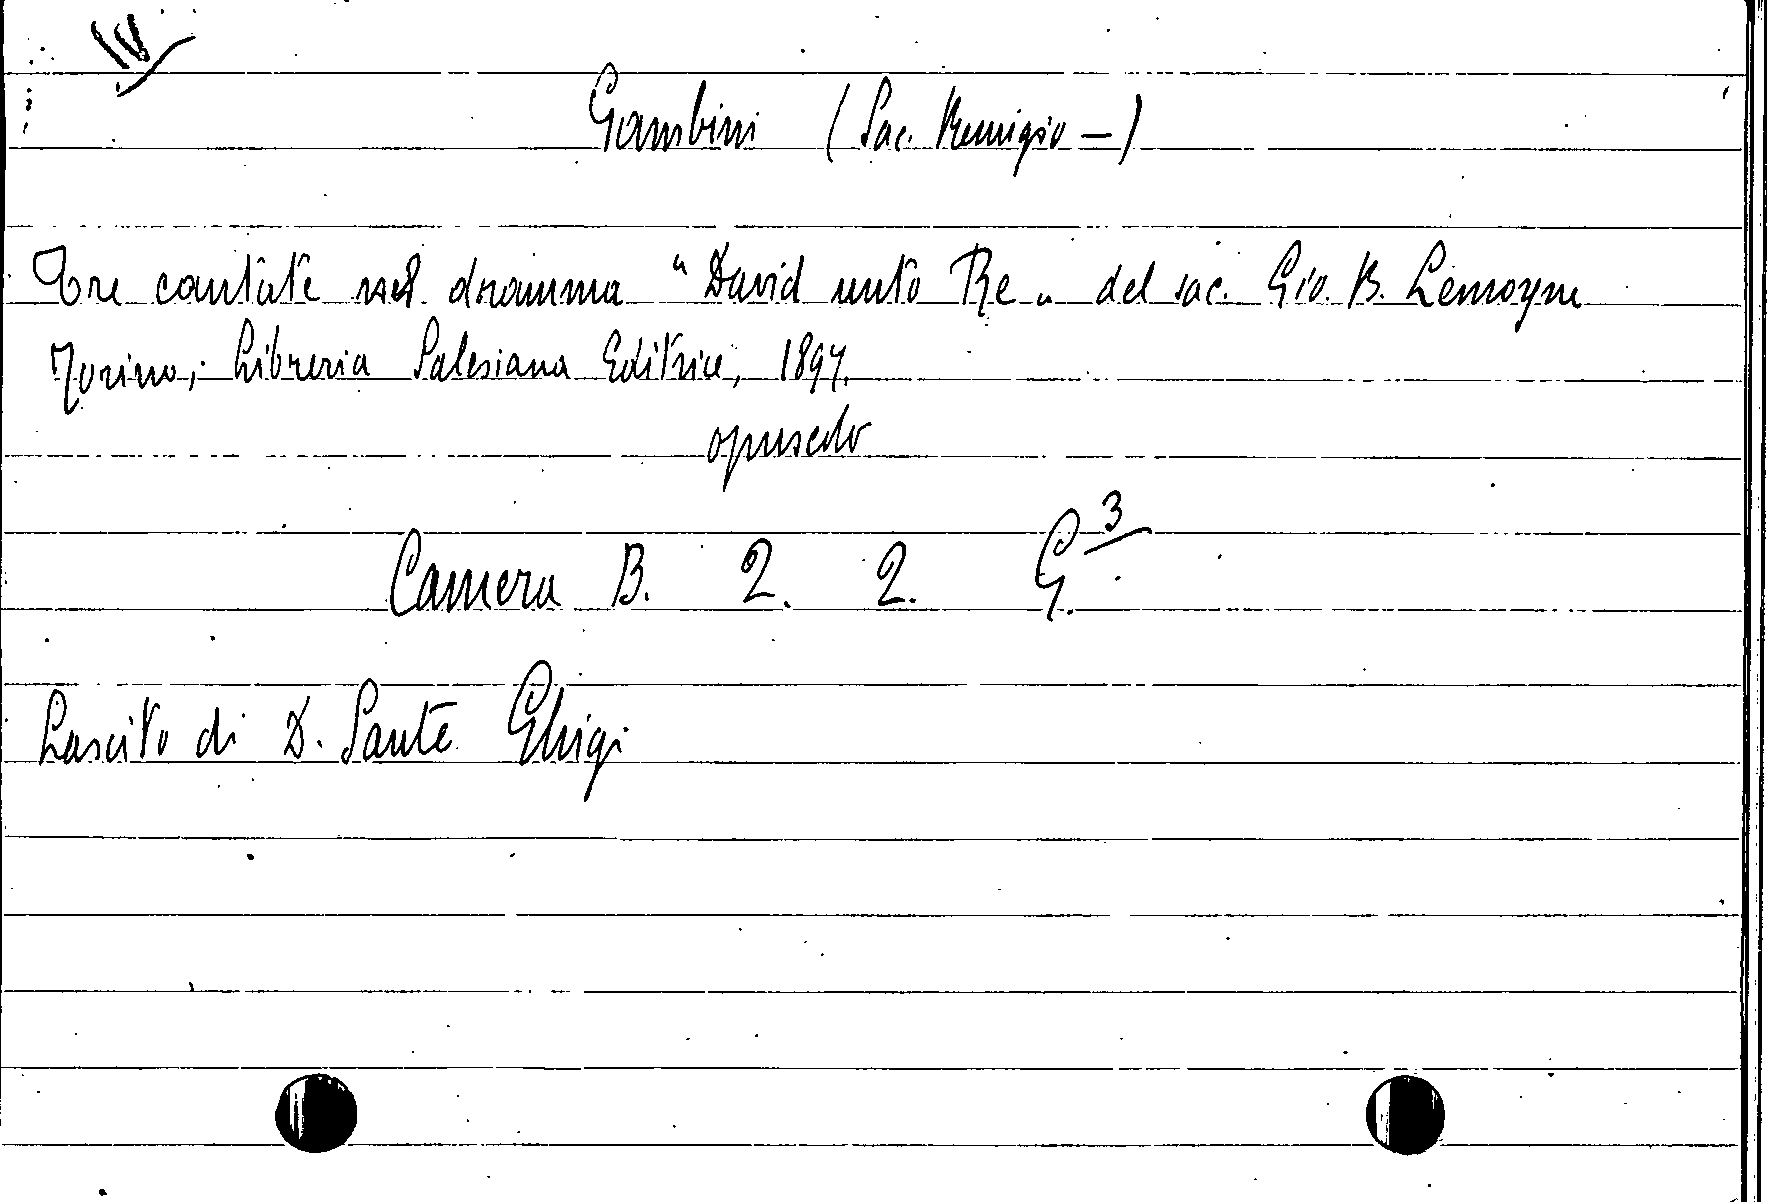 IV
Gambini (Sac. Remigio —)
Tre cantate nel dramma "David unto Re" del sac. Gio. B. Lemoyne
Torino, Libreria Salesiana Editrice, 1897.
opuscolo
Camera B. 2. 2. G.3
Lascito di D. Sante Ghigi